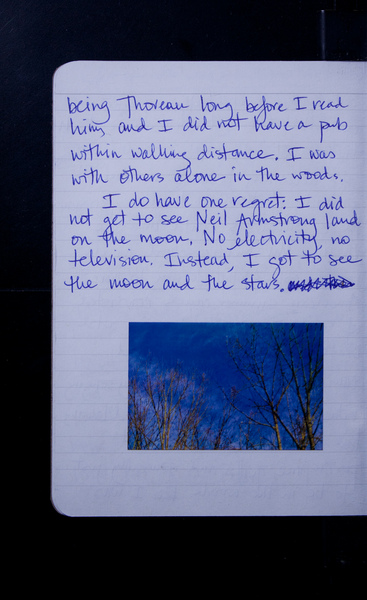 being Thoreau long before I read
him, and I did not have a pub
within walking distance. I was
with others alone in the woods.
I do have one regret: I did
not get to see Neil Armstrong land
on the moon. No electricity, no
television. Instead, I got to see
the moon and the stars.